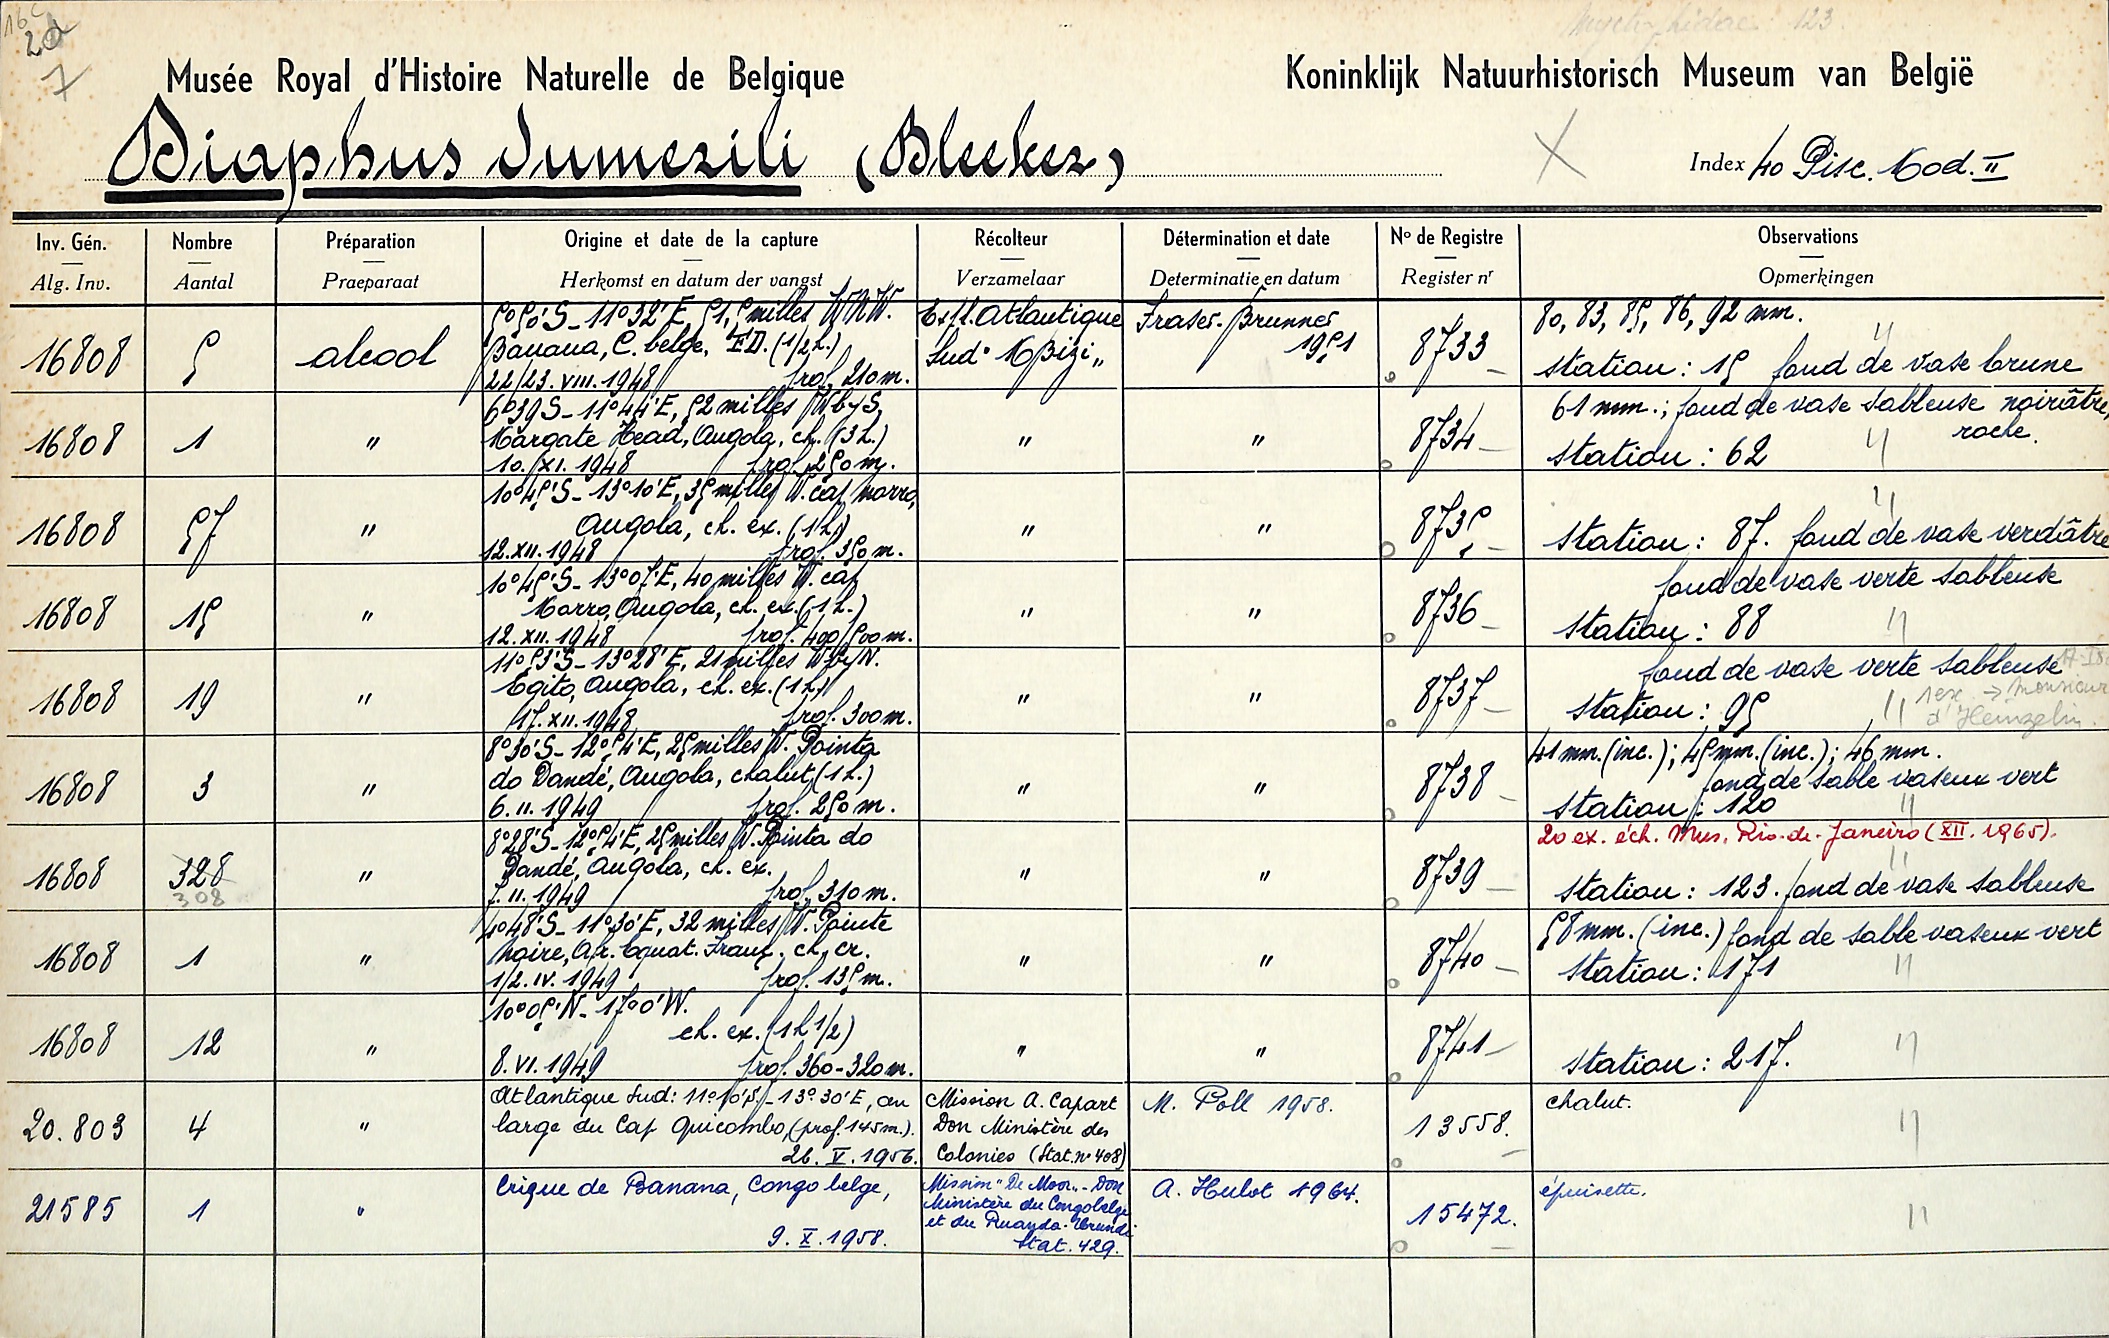 16c
2d
7
Myctophidae 123
Musée Royal d'Histoire Naturelle de Belgique
Koninklijk Natuurhistorisch Museum van België
Diaphus dumerili (Bleeker)
X
Index 40 Pisc. Mod. II
Inv. Gén. Nombre Préparation Origine et date de la capture Récolteur Détermination et date No de Registre Observations
Alg. Inv. Aantal Praeparaat Herkomst en datum der vangst Verzamelaar Determinatie en datum Register nr Opmerkingen
5°50'S - 11°32'E, 51,5 milles WNW. Exp. Atlantique Fraser-Brunner 80, 83, 85, 86, 92 mm.
16808 5 alcool Banana, C. belge, (1/2 h.) Sud "M'Bizi" 1951 8733 station: 15 fond de vase brune
22/23.VIII.1948 prof. 210m.
6°39'S - 11°44'E, 52 milles W by S. 61 mm.; fond de vase sableuse noirâtre,
16808 1 " Margate Head, Angola, ch. (3h.) " " 8734 roche.
10.XI.1948 prof. 250m. station: 62
10°45'S - 13°10'E, 35 milles W. cap Morro,
16808 57 " Angola, ch. ex. (1h.) " " 8735 station: 87. fond de vase verdâtre
12.XII.1948 prof. 350m.
10°45'S - 13°07'E, 40 milles W. cap fond de vase verte sableuse
16808 15 " Morro, Angola, ch. ex. (1h.) " " 8736 station: 88
12.XII.1948 prof. 400/500m.
11°53'S - 13°28'E, 21 milles W by N. fond de vase verte sableuse
16808 19 " Egito, Angola, ch. ex. (1h.) " " 8737 station: 95 1ex → Monsieur
17.XII.1948 prof. 300m. d'Heinzelin.
8°30'S - 12°54'E, 25 milles W. Pointa 41 mm. (inc.); 45 mm. (inc.); 46 mm.
16808 3 " do Dandé, Angola, chalut (1h.) " " 8738 fond de sable vaseux vert
6.II.1949 prof. 250m. station: 120
8°28'S - 12°54'E, 25 milles W. Pointa do 20 ex. éch. Mus. Rio-de-Janeiro (XII.1965).
16808 328 " Dandé, Angola, ch. ex. " " 8739 station: 123. fond de vase sableuse
308 7.II.1949 prof. 310m.
4°48'S - 11°30'E, 32 milles W. Pointe 58 mm. (inc.) fond de sable vaseux vert
16808 1 " Noire, Afr. Equat. Franç. ch. cr. " " 8740 station: 171
1/2.IV.1949 prof. 135m.
10°05'N - 17°0'W.
16808 12 " ch. ex. (1h 1/2) " " 8741 station: 217.
8.VI.1949 prof. 360-320m.
Atlantique Sud: 11°10'S - 13°30'E, au Mission A. Capart M. Poll 1958. chalut.
20.803 4 " large du Cap Quicombo, (prof. 145m.). Don Ministère des 13558.
26.V.1956. Colonies (Stat. n° 408)
Crique de Banana, Congo belge, Mission "De Moor" - Don A. Hulot 1964. épuisette.
21585 1 " Ministère du Congo belge 15472.
et du Ruanda-Urundi
9.X.1958. Stat. 429.